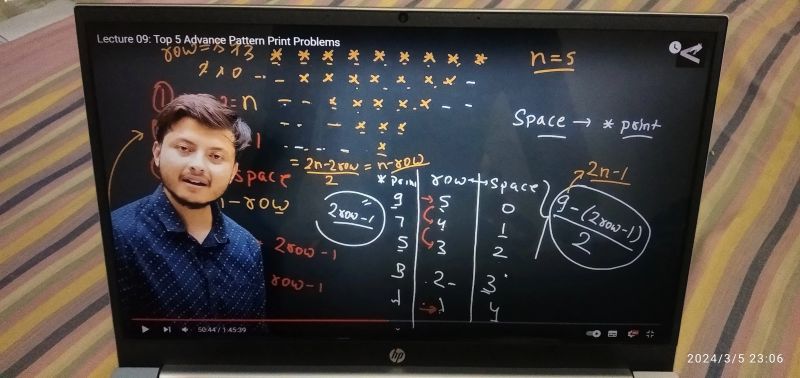 Lecture 09: Top 5 Advance Pattern Print Problems
* * * * * * * * *
n=5
-- * * * * * * *
= n
Space → * print
= 2n-2row / 2 = n-row
2n-1
Space
* print row → Space
9 5 0
9-(2row-1) / 2
-row
2row-1
7 4 1
5 3 2
2row-1
3 2 3
row-1
1 1 4
50:44 / 1:45:39
hp
2024/3/5 23:06